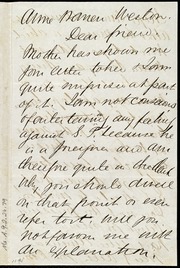 Anne Warren Weston.
Dear friend.
Mother has shown me
your letter to her & I am
quite surprised at part
of it. I am not conscious
of entertaining any feeling
against S. P. because he
is a foreigner and am
therefore quite in the dark
why you should dwell
on that point or even
refer to it. Will you
not favor me with
an explanation.
Ms. A. 9. 2. 24. 79